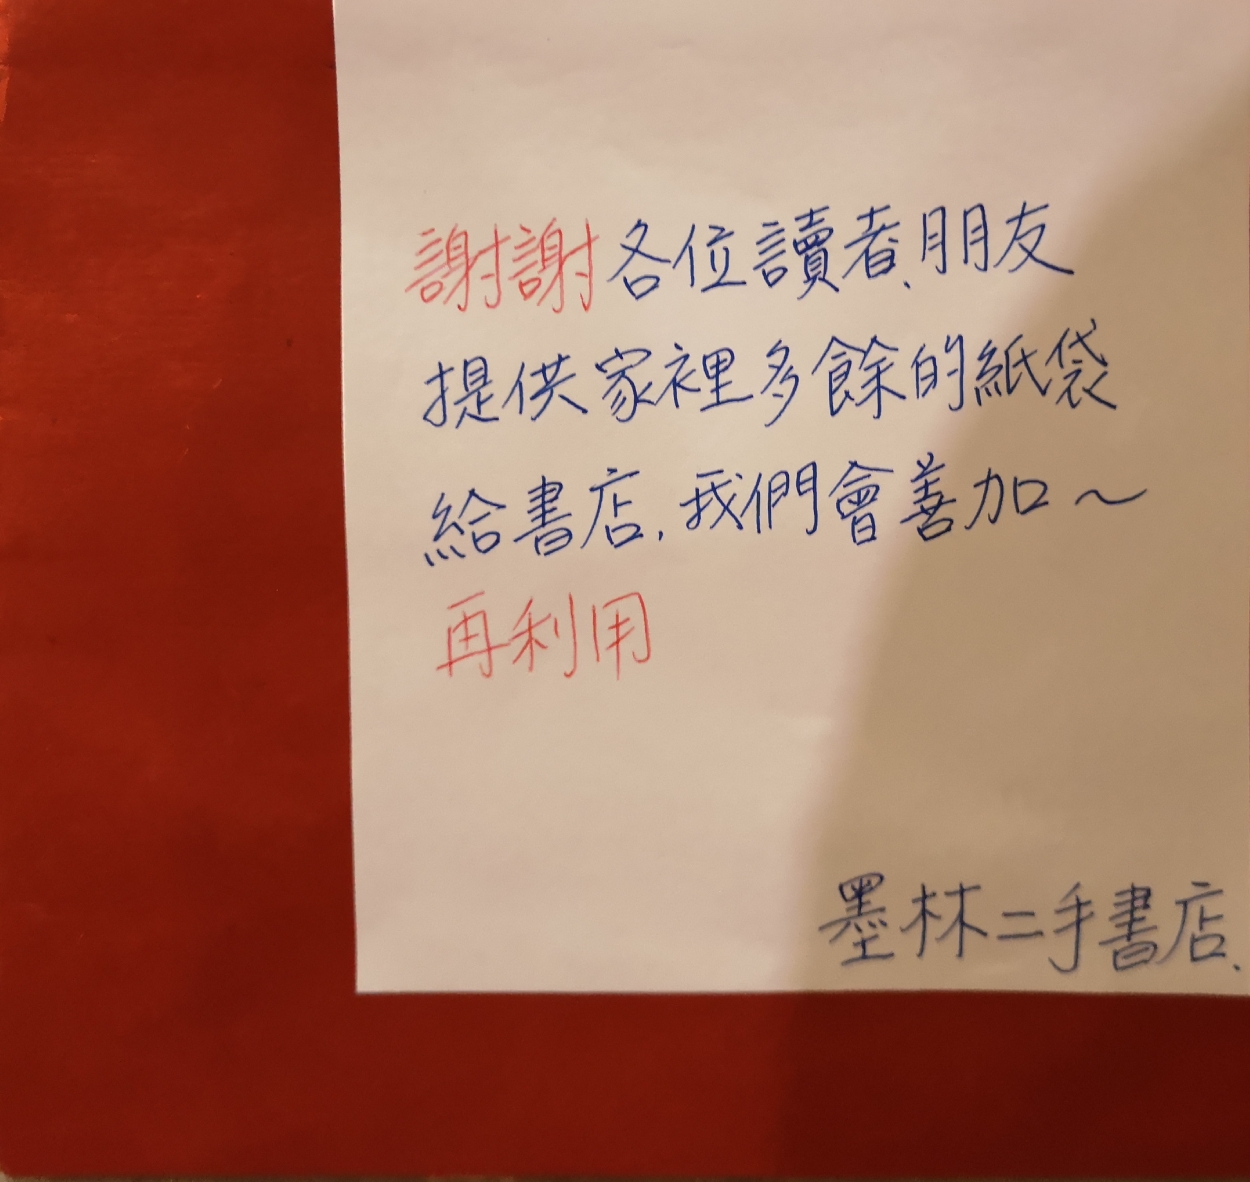 謝謝各位讀者、朋友
提供家裡多餘的紙袋
給書店,我們會善加~
再利用
墨林二手書店.